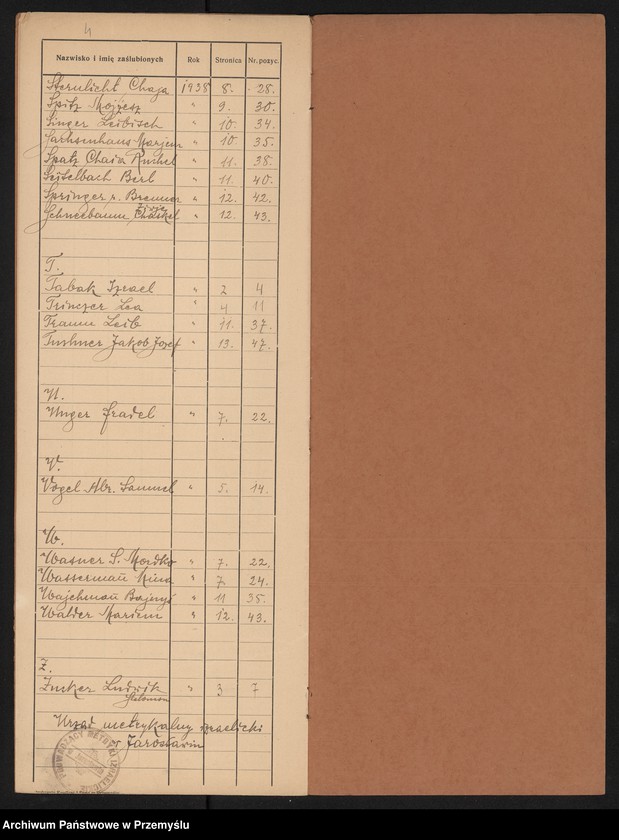 4
Nazwisko i imię zaślubionych Rok Stronica Nr. pozyc.
Sternlicht Chaja 1938 8. 28.
Spitz Mojżesz " 9. 30.
Singer Leibisch " 10. 34.
Sachsenhaus Marjem " 10. 35.
Spatz Chaia Ruchel " 11. 38.
Seitelbach Berl " 11. 40.
Springer r. Brenner " 12. 42.
Schneebaum Chaskel " 12. 43.
T.
Tabak Izrael " 2 4
Trinczer Lea " 4 11
Traum Leib " 11. 37.
Tuchner Jakob Josef " 13. 47.
U.
Unger Fradel " 7. 22.
V.
Vogel Abr. Samuel " 5. 14.
W.
Wasner S. Mordko " 7. 22.
Wasserman̄ Mina " 7. 24.
Wajchman̄ " 11 35.
Walder Mariem " 12. 43.
Z.
Zucker Ludwik " 3 7
Salomon
Urząd metrykalny izraelicki
w Jarosławiu
PROWADZĄCY METRYKI IZRAELICKIE
Archiwum Państwowe w Przemyślu